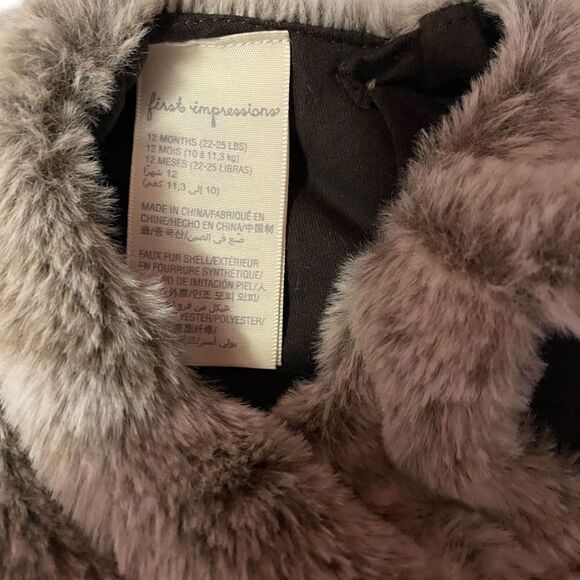 first impressions
12 MONTHS (22-25 LBS)
12 MOIS (10 à 11,3 kg)
12 MESES (22-25 LIBRAS)
12 شهرًا
(10 إلى 11,3 كغم)
MADE IN CHINA/FABRIQUÉ EN
CHINE/HECHO EN CHINA/中国制
造/중국산/صنع في الصين
FAUX FUR SHELL/EXTÉRIEUR
EN FOURRURE SYNTHÉTIQUE/
PO DE IMITACIÓN PIEL/人
外層/인조 모피 외피/
شكل من فرو
YESTER/POLYESTER/
بولي أستر